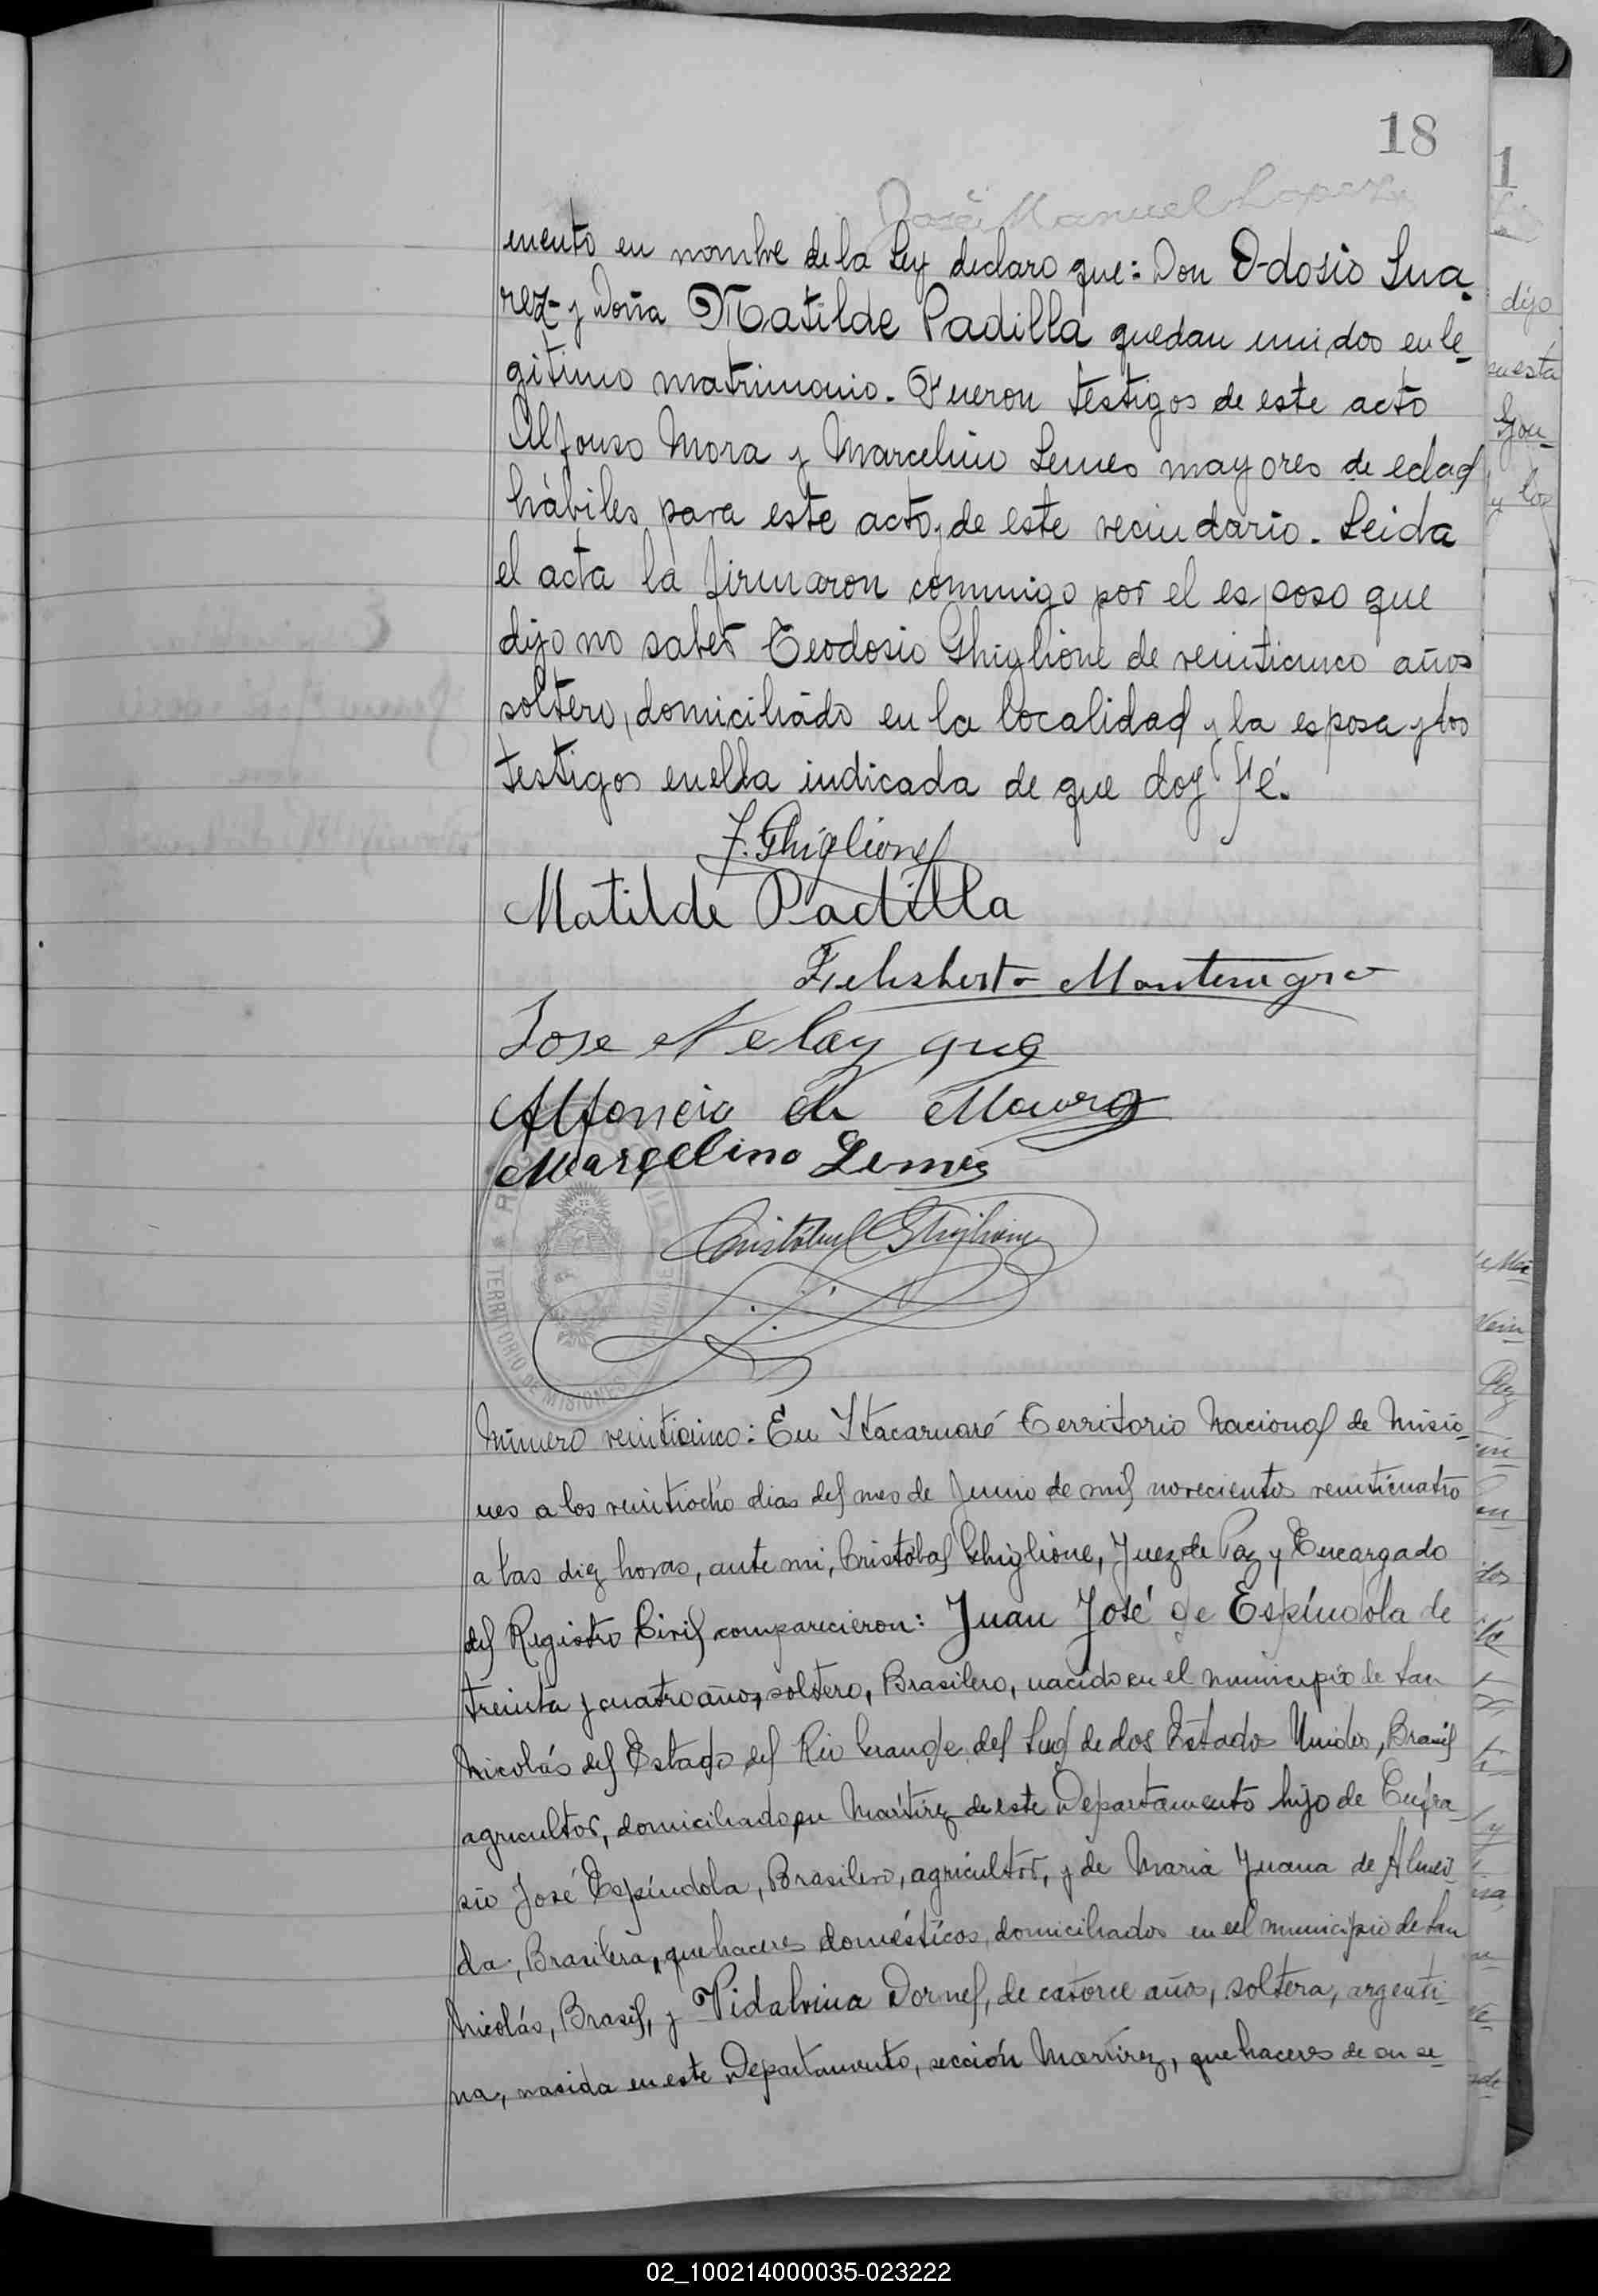 18
José Manuel Lopez
mento en nombre de la Ley declaro que: Don Odosio Sua-
rez y Doña Matilde Padilla quedan unidos en le-
gitimo matrimonio. Fueron testigos de este acto
Alfonso Mora y Marcelino Lemes mayores de edad
hábiles para este acto, de este vecindario. Leida
el acta la firmaron conmigo por el esposo que
dijo no saber Teodosio Ghiglione de veinticinco años
soltero, domiciliado en la localidad y la esposa y los
testigos en ella indicada de que doy fé.
T. Ghiglione
Matilde Padilla
Montenegro
Jose
Alfoncio de Moura
Marcelino Lemes
Cristóbal Ghiglione
TERRITORIO DE MISIONES
Número veinticinco: En Itacaruaré Territorio Nacional de Misio-
nes a los veintiocho dias del mes de Junio de mil novecientos veinticuatro
a las diez horas, ante mi, Cristóbal Ghiglione, Juez de Paz y Encargado
del Registro Civil comparecieron: Juan José de Espíndola de
treinta y cuatro años, soltero, Brasilero, nacido en el municipio de San
Nicolás del Estado del Rio Grande del Sud de los Estados Unidos, Brasil
agricultor, domiciliado en Mártirez de este Departamento hijo de Eufra-
sio José Espíndola, Brasilero, agricultor, y de Maria Juana de Almei-
da, Brasilera, quehaceres domésticos, domiciliados en el municipio de San
Nicolás, Brasil, y Vidalvina Dornel, de catorce años, soltera, argenti-
na, nasida en este Departamento, sección Martirez, quehaceres de su se-
dijo
02_100214000035-023222